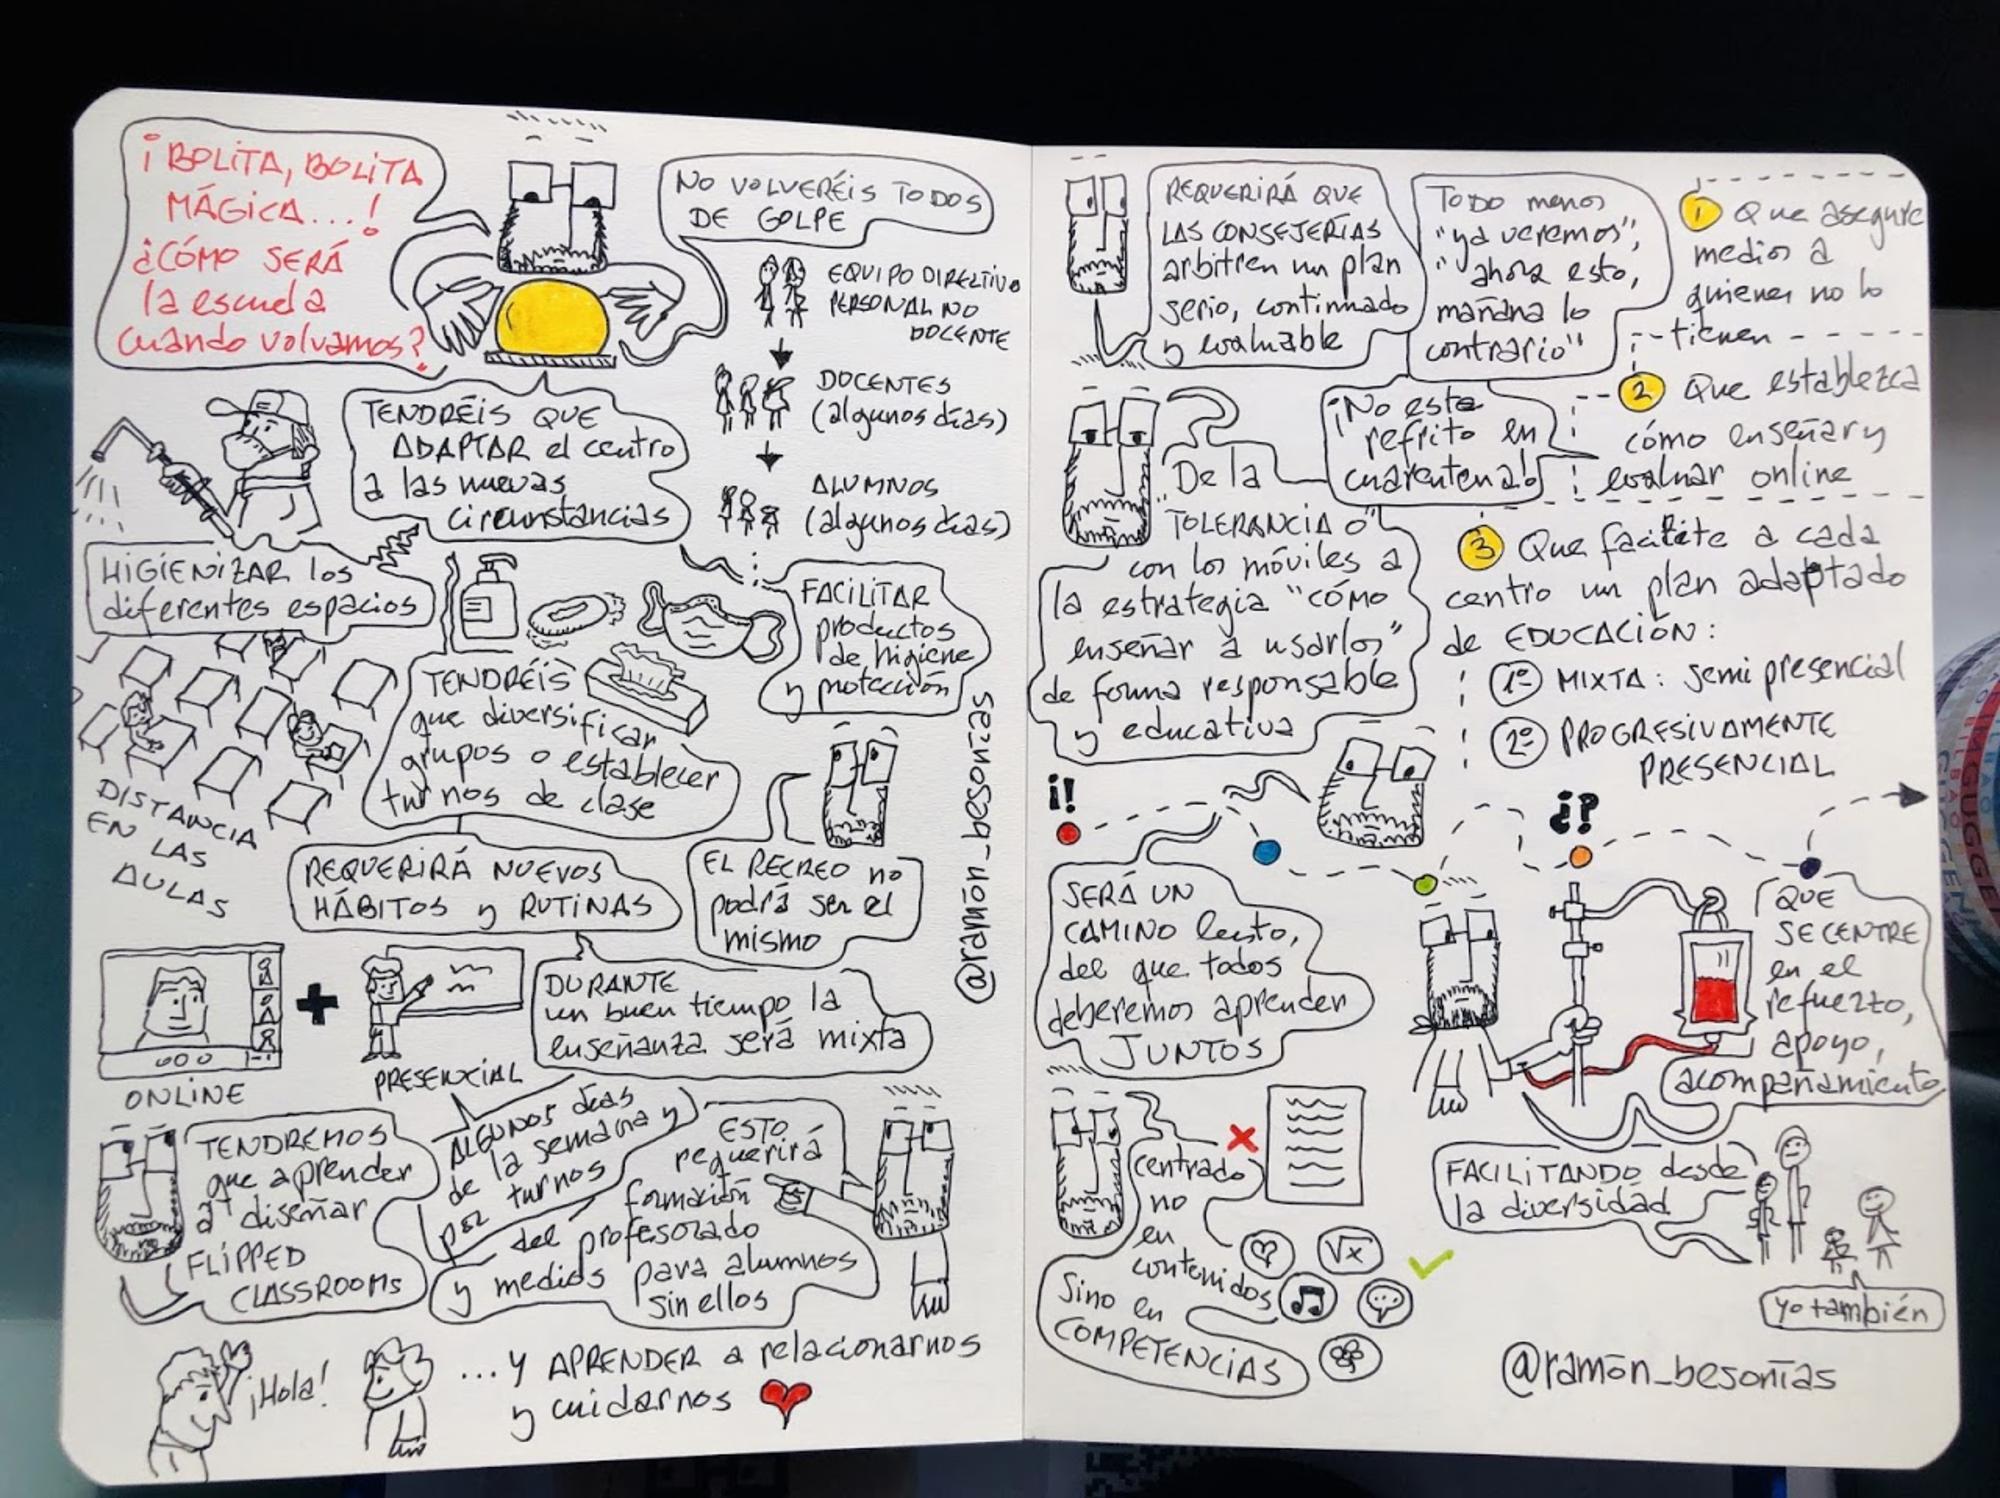 ¡BOLITA, BOLITA
MÁGICA...!
¿CÓMO SERÁ
la escuela
cuando volvamos?
NO VOLVERÉIS TODOS
DE GOLPE
EQUIPO DIRECTIVO
PERSONAL NO
DOCENTE
DOCENTES
(algunos días)
ALUMNOS
(algunos días)
TENDRÉIS QUE
ADAPTAR el centro
a las nuevas
circunstancias
HIGIENIZAR los
diferentes espacios
FACILITAR
productos
de higiene
y protección
TENDRÉIS
que diversificar
grupos o establecer
turnos de clase
DISTANCIA
EN LAS
AULAS
REQUERIRÁ NUEVOS
HÁBITOS y RUTINAS
EL RECREO no
podrá ser el
mismo
@ramón_besonías
DURANTE
un buen tiempo la
enseñanza será mixta
ONLINE
PRESENCIAL
ALGUNOS días
de la semana y
por turnos
TENDREMOS
que aprender
a diseñar
FLIPPED
CLASSROOMS
ESTO
requerirá
formación
del profesorado
y medios para alumnos
sin ellos
¡Hola!
...Y APRENDER a relacionarnos
y cuidarnos
REQUERIRÁ QUE
LAS CONSEJERÍAS
arbitren un plan
serio, continuado
y evaluable
TODO menos
"ya veremos",
"ahora esto,
mañana lo
contrario"
¡No este
refrito en
cuarentena!
1 Que asegure
medios a
quienes no lo
tienen
2 Que establezca
cómo enseñar y
evaluar online
3 Que facilite a cada
centro un plan adaptado
de EDUCACIÓN:
1º MIXTA: semipresencial
2º PROGRESIVAMENTE
PRESENCIAL
De la
"TOLERANCIA 0"
con los móviles a
la estrategia "cómo
enseñar a usarlos"
de forma responsable
y educativa
¡!
¿?
SERÁ UN
CAMINO lento,
del que todos
deberemos aprender
JUNTOS
QUE
SE CENTRE
en el
refuerzo,
apoyo,
acompañamiento
FACILITANDO desde
la diversidad
centrado
no
en
contenidos
Sino en
COMPETENCIAS
√x
yo también
@ramón_besonías